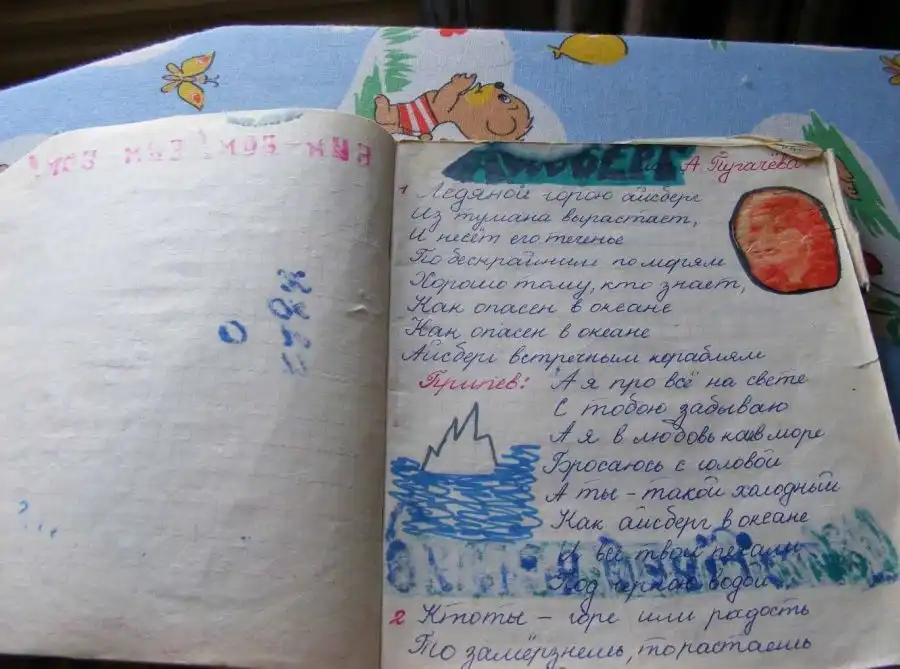 Айсберг А Пугачёва
1 Ледяной горою айсберг
Из тумана вырастает,
И несёт его теченье
По бескрайним по морям
Хорошо тому, кто знает,
Как опасен в океане
Как опасен в океане
Айсберг встречным кораблям
Припев: А я про всё на свете
С тобою забываю
А я в любовь как в море
Бросаюсь с головой
А ты - такой холодный
Как айсберг в океане
И все твои печали
Под чёрною водой
2 Кто ты - горе или радость
То замёрзнешь, то растаешь